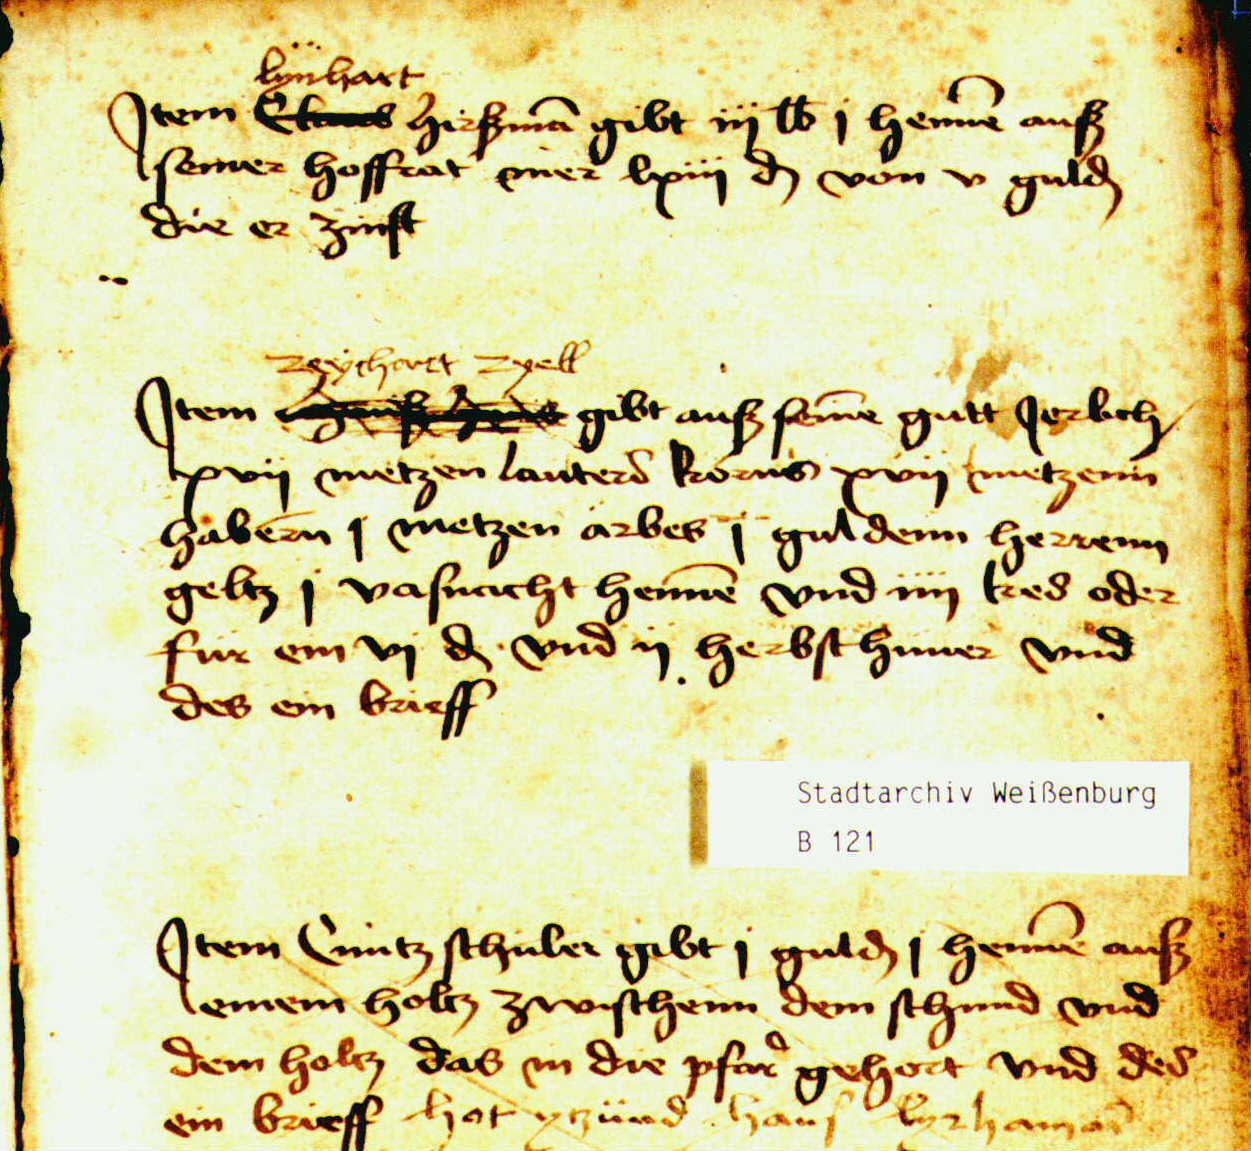 lynhart
Item Clauß hirßmā gibt iij lb j henne auß
seiner hoffrat mer lxiij d von v guld
die er zinst
Item gibt auß seine gutt Jerlich
xvij metzen lauters korns xvij metzenn
habern j metzen arbes j guldenn herrenn
geltz j vasnacht henne vnd iiij kes oder
für ein vj d vnd ij herbsthuner vnd
des ein brieff
Stadtarchiv Weißenburg
B 121
Item Cuntz schuler gibt j guld j henne auß
einem holtz zwischenn dem schmid vnd
dem holtz das in die pfar gehort vnd des
ein brieff hot ytzund hans